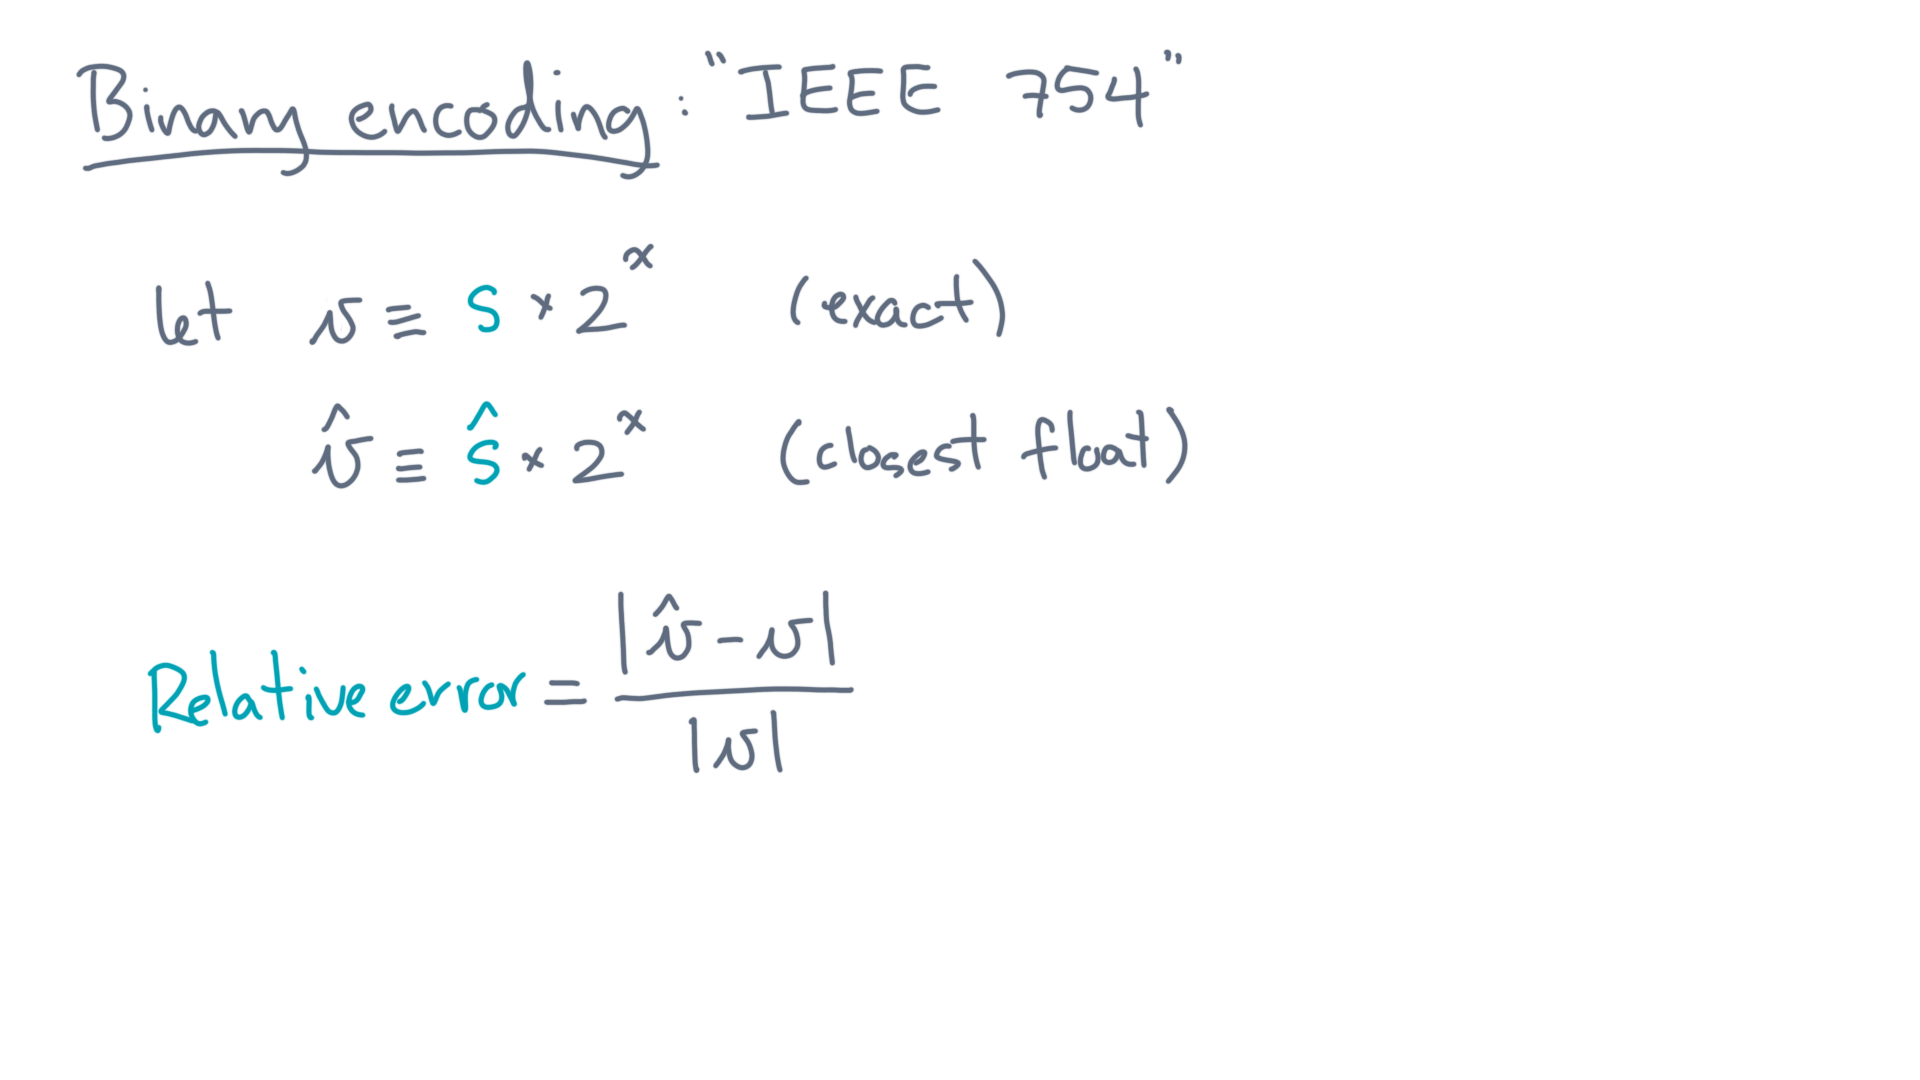 Binary encoding: "IEEE 754"
let v ≡ s × 2^x (exact)
v̂ ≡ ŝ × 2^x (closest float)
Relative error = |v̂ - v| / |v|